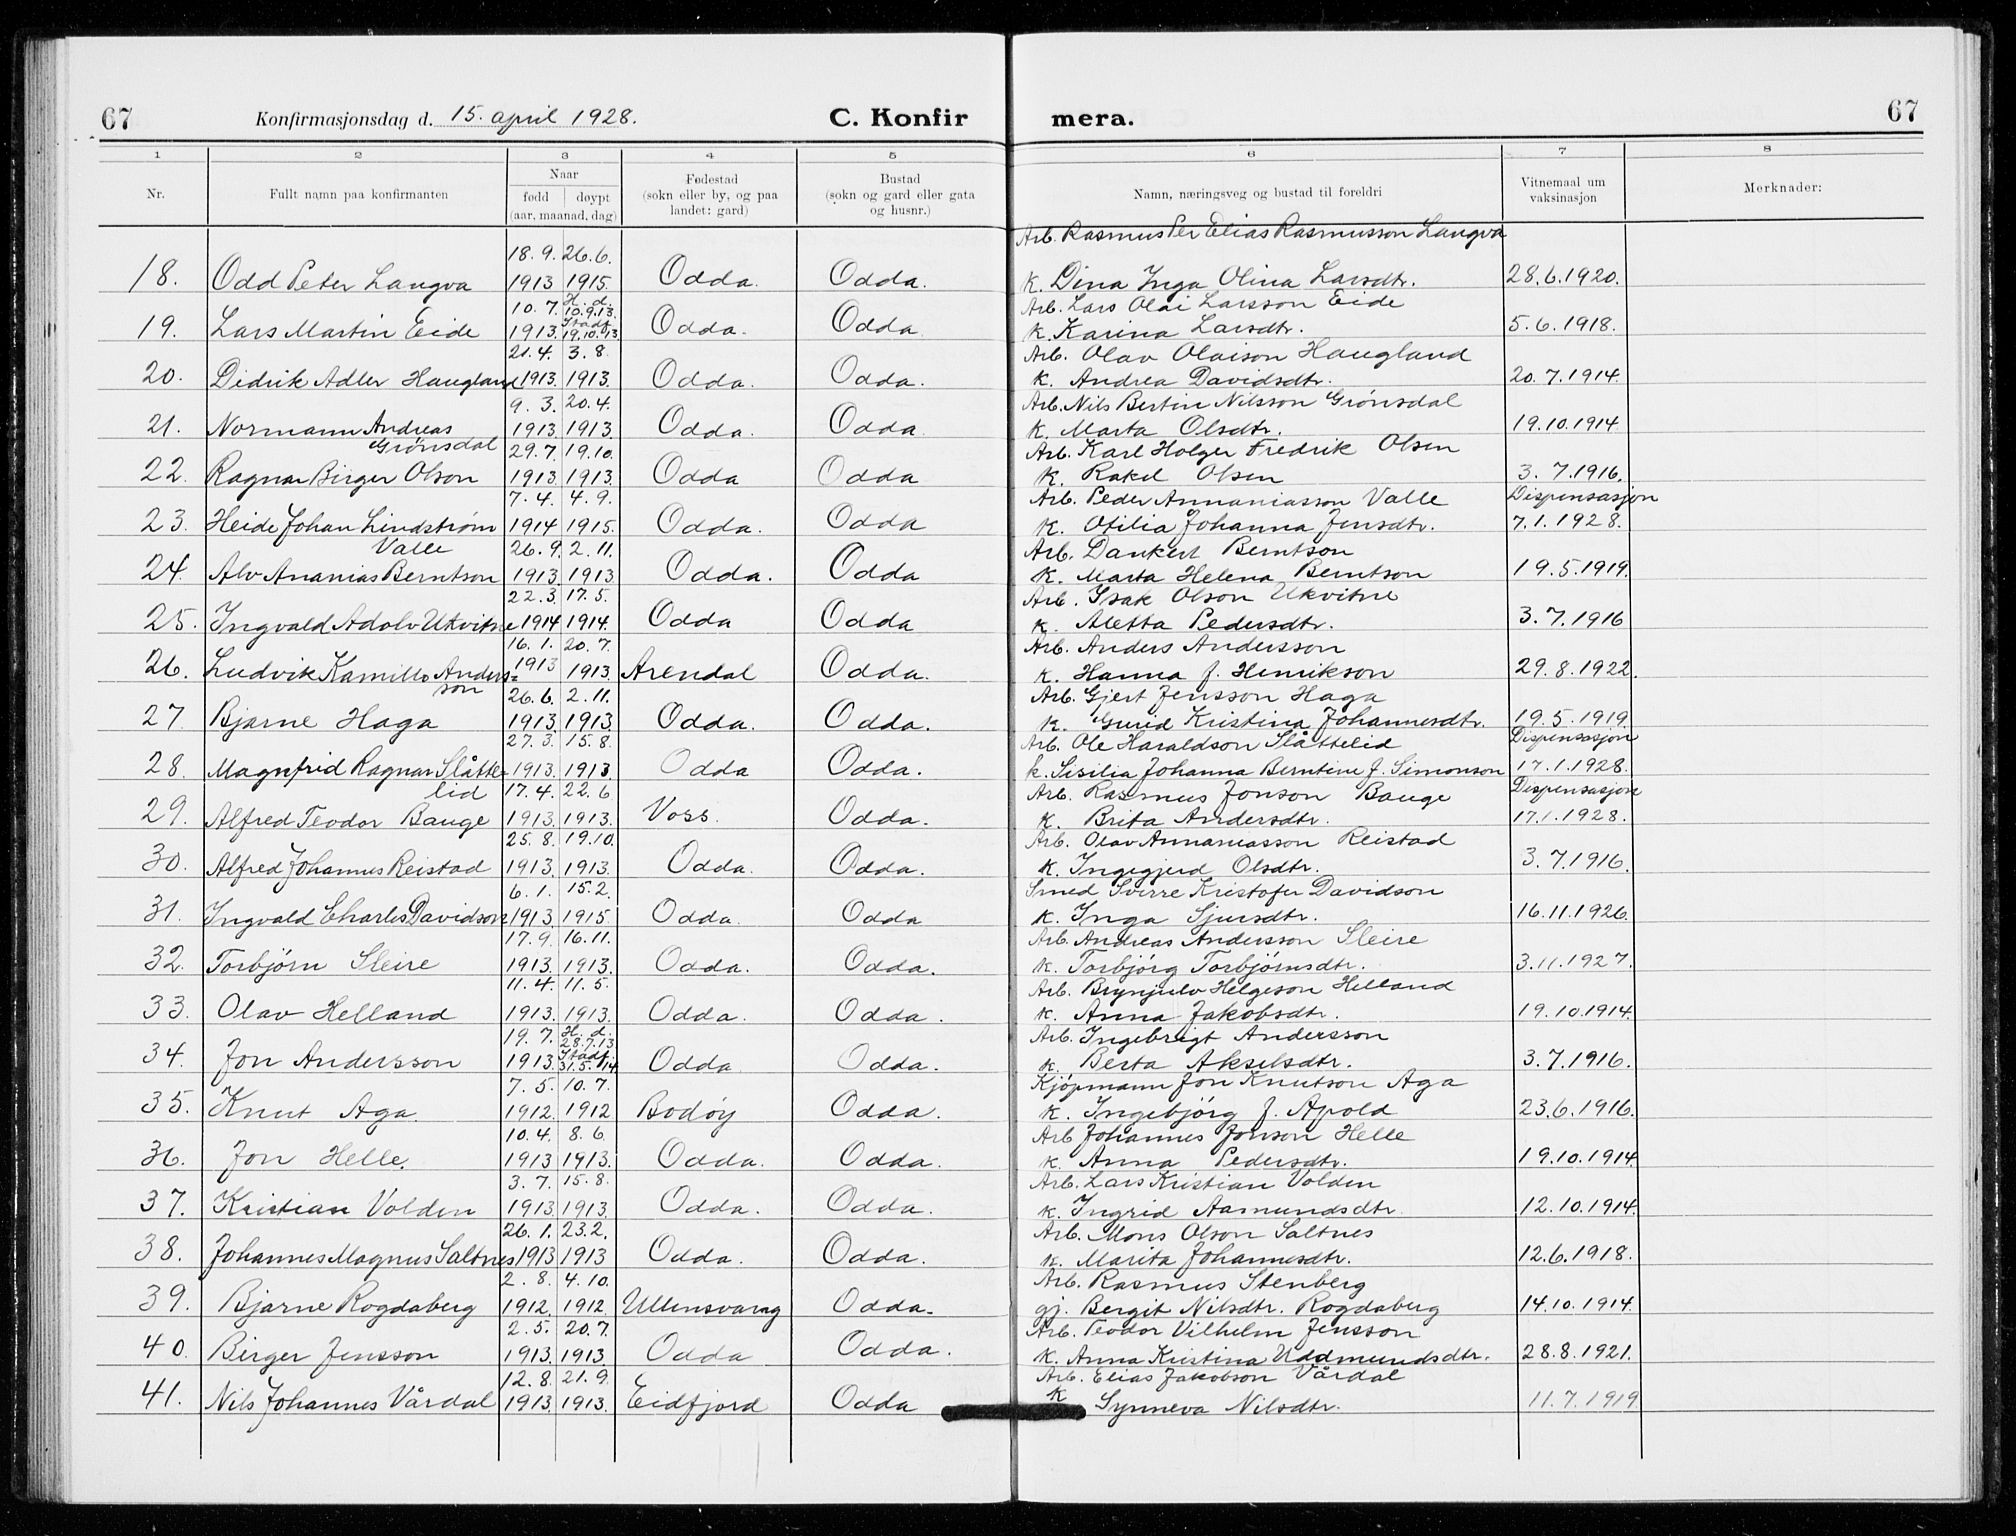 67 Konfirmasjonsdag d. 15. april 1928. C. Konfir mera. 67
1 2 3 4 5 6 7 8
Nr. Fullt namn paa konfirmanten Naar fødd døypt (aar, maanad, dag) Fødestad (sokn eller by, og paa landet: gard) Bustad (sokn og gard eller gata og husnr.) Namn, næringsveg og bustad til foreldri Vitnemaal um vaksinasjon Merknader:
18. 9. 26. 6. Arb. Rasmus Per Elias Rasmusson Langva
18. Odd Peter Langva 1913 1915. Odda. Odda. K. Dina Inga Olina Larsdtr. 28.6.1920.
10. 7. H. d. 10.9.13. Arb. Lars Olai Larsson Eide
19. Lars Martin Eide 1913. Stadf. 19.10.13 Odda. Odda K. Karina Larsdtr. 5.6.1918.
21. 4. 3. 8. Arb. Olav Olaison Haugland
20. Didrik Adler Haugland 1913. 1913. Odda. Odda. K. Andrea Davidsdtr. 20.7.1914.
9. 3. 20. 4. Arb. Nils Bertin Nilsson Grønsdal
21. Normann Andreas 1913. 1913. Odda. Odda. K. Marta Olsdtr. 19.10.1914
Grønsdal 29. 7. 19.10. Arb. Karl Holger Fredrik Olsen
22. Ragnar Birger Olson 1913. 1913. Odda Odda K. Rakel Olsen 3. 7.1916.
7. 4. 4. 9. Arb. Peder Annaniasson Valle Dispensasjon
23. Heide Johan Lindstrøm 1914 1915. Odda. Odda K. Otilia Johanna Jensdtr. 7.1.1928.
Valle 26. 9. 2. 11. Arb. Dankert Berntson
24. Alv Ananias Berntson 1913. 1913 Odda. Odda K. Marta Helena Berntson 19.5.1919.
22. 3. 17. 5. Arb. Isak Olson Ukvitne
25. Ingvald Adolv Ukvitne 1914 1914. Odda Odda K. Aletta Pedersdtr. 3.7.1916
16. 1. 20. 7. Arb. Anders Andersson
26. Ludvik Kamillo Anders= 1913 1913. Arendal Odda. K. Hanna J. Henrikson 29.8.1922.
son 26. 6. 2. 11. Arb. Gjert Jensson Haga
27. Bjarne Haga 1913. 1913. Odda. Odda. K. Gurid Kristina Johannesdtr. 19.5.1919.
27. 3. 15. 8. Arb. Ole Haraldson Slåttelid Dispensasjon
28. Magnfrid Ragnar Slåtte= 1913. 1913. Odda Odda. K. Sisilia Johanna Berntine J. Simonson 17.1.1928.
lid 17. 4. 22. 6 Arb. Rasmus Jonson Bauge Dispensasjon
29. Alfred Teodor Bauge 1913. 1913. Voss. Odda. K. Brita Andersdtr. 17.1.1928.
25. 8. 19.10. Arb. Olav Annaniasson Reistad
30. Alfred Johannes Reistad 1913. 1913. Odda. Odda. K. Ingegjerd Olsdtr. 3.7.1916.
6. 1. 15.2. Smed Sverre Kristofer Davidson
31. Ingvald Charles Davidson 1913. 1915. Odda. Odda K. Inga Sjursdtr. 16.11.1926.
17. 9. 16. 11. Arb. Andreas Andersson Sleire
32. Torbjørn Sleire 1913. 1913. Odda. Odda. K. Torbjörg Torbjørnsdtr. 3.11.1927.
11. 4. 11. 5. Arb. Brynjulv Helgeson Helland
33. Olav Helland 1913. 1913. Odda. Odda. K. Anna Jakobsdtr. 19.10.1914.
19. 7. H. d. 28.7.13 Arb. Ingebrigt Andersson
34. Jon Andersson 1913. Stadf. 31.5.14 Odda Odda. K. Berta Akselsdtr. 3.7.1916.
7. 5. 10. 7. Kjöpmann Jon Knutson Aga
35. Knut Aga. 1912. 1912 Bodöy Odda. K. Ingebjörg J. Apold 23.6.1916.
10. 4. 8. 6. Arb Johannes Jonson Helle
36. Jon Helle. 1913 1913. Odda. Odda. K. Anna Pedersdtr. 19.10.1914
3. 7. 15. 8. Arb. Lars Kristian Volden
37. Kristian Volden 1913. 1913. Odda. Odda. K. Ingrid Aamundsdtr. 12.10.1914.
26. 1. 23.2. Arb. Mons Olson Saltnes
38. Johannes Magnus Saltnes 1913 1913 Odda. Odda. K. Marita Johannesdtr. 12.6.1918.
2. 8. 4. 10. Arb. Rasmus Stenberg
39. Bjarne Rogdaberg 1912. 1912. Ullensvang Odda. gj. Bergit Nilsdtr. Rogdaberg 14.10.1914.
2. 5. 20. 7. Arb. Teodor Vilhelm Jensson
40. Birger Jensson 1913. 1913. Odda Odda. K. Anna Kristina Uddmundsdtr. 28.8.1921.
12. 8. 21. 9. Arb. Elias Jakobson Vårdal
41. Nils Johannes Vårdal 1913. 1913. Eidfjord Odda K Synneva Nilsdtr. 11.7.1919.